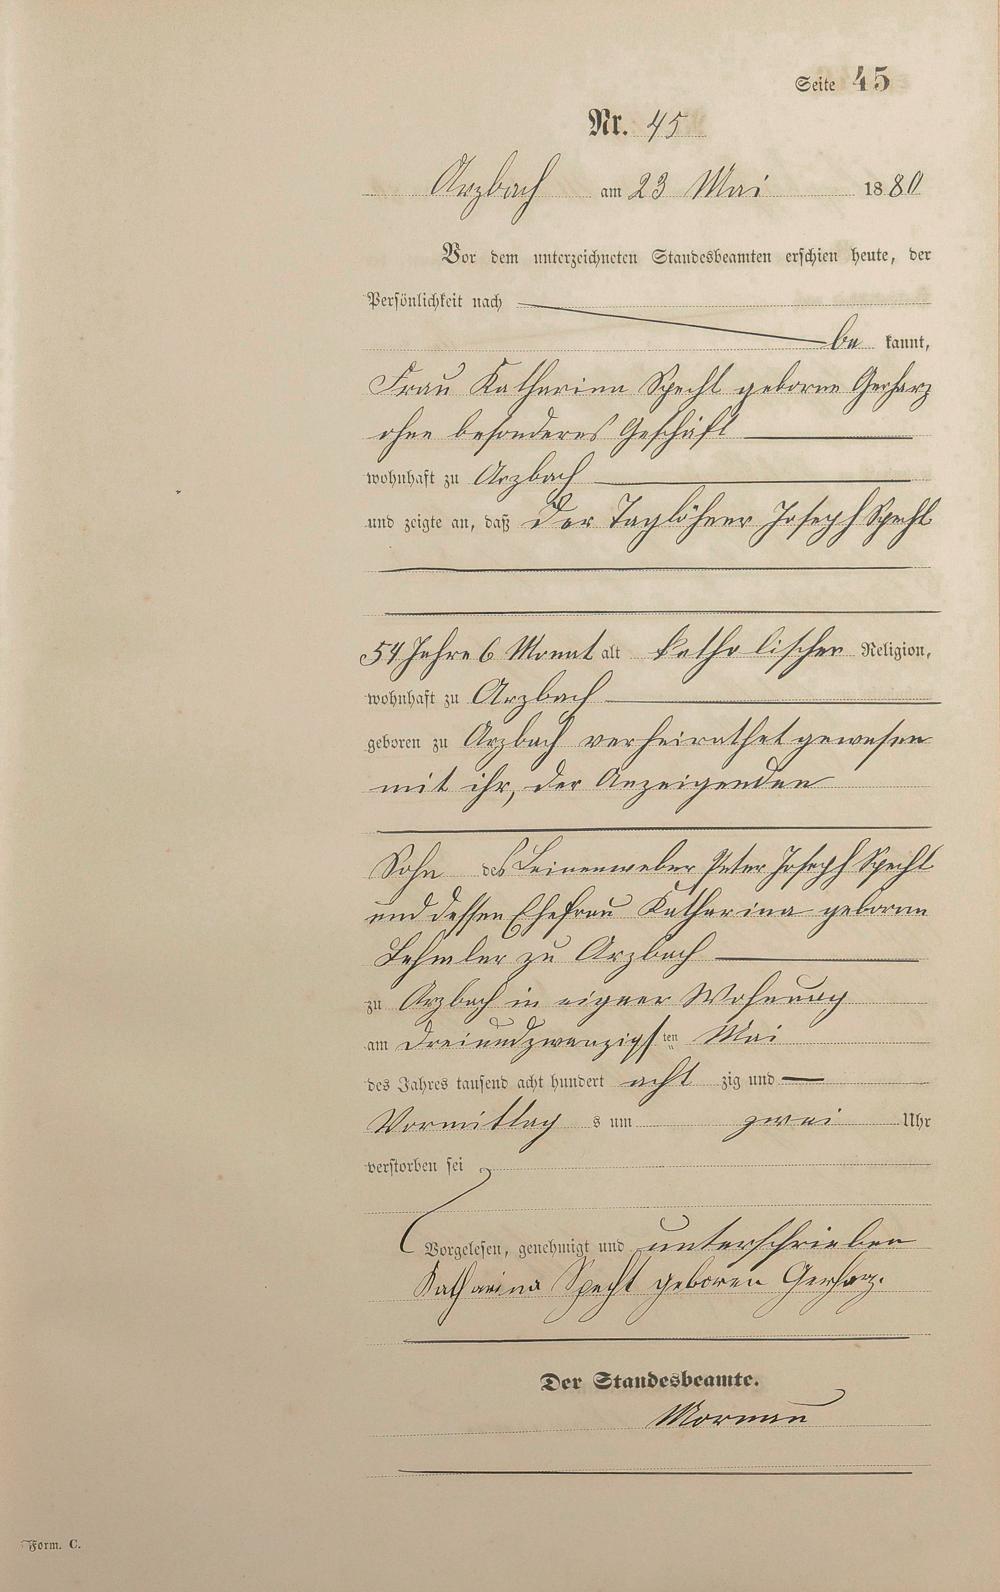 Seite 45
Nr. 45
Arzbach am 23 Mai 1880
Vor dem unterzeichneten Standesbeamten erschien heute, der
Persönlichkeit nach
be kannt,
Frau Katharina Specht geborne Gerharz
ohne besonderes Geschäft
wohnhaft zu Arzbach
und zeigte an, daß der Taglöhner Joseph Specht
54 Jahre 6 Monat alt katholischer Religion,
wohnhaft zu Arzbach
geboren zu Arzbach verheirathet gewesen
mit ihr, der Anzeigenden
Sohn des Leinenweber Peter Joseph Specht
und dessen Ehefrau Katharina geborne
Lehmler zu Arzbach
zu Arzbach in eigner Wohnung
am dreiundzwanzigsten Mai
des Jahres tausend acht hundert acht zig und
Vormittag s um zwei Uhr
verstorben sei
Vorgelesen, genehmigt und unterschrieben
Katharina Specht geboren Gerharz.
Der Standesbeamte.
Form. C.